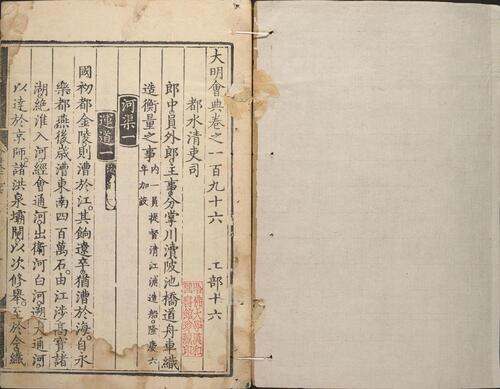 大明會典卷之一百九十六 工部十六
都水清吏司
郎中。員外郎。主事。分掌川瀆陂池橋道舟車織
造衡量之事 內一員提督清江浦造船。隆慶六
年加設
河渠一
運道一
國初都金陵。則漕於江。其餉遼卒。猶漕於海。自永
樂都燕。後歲漕東南四百萬石。由江涉高寶諸
湖。絕淮入河。經會通河。出衛河白河。溯大通河。
以達於京師。諸洪泉壩閘。以次修舉。至於今纖
哈佛大學漢和
圖書館珍藏印